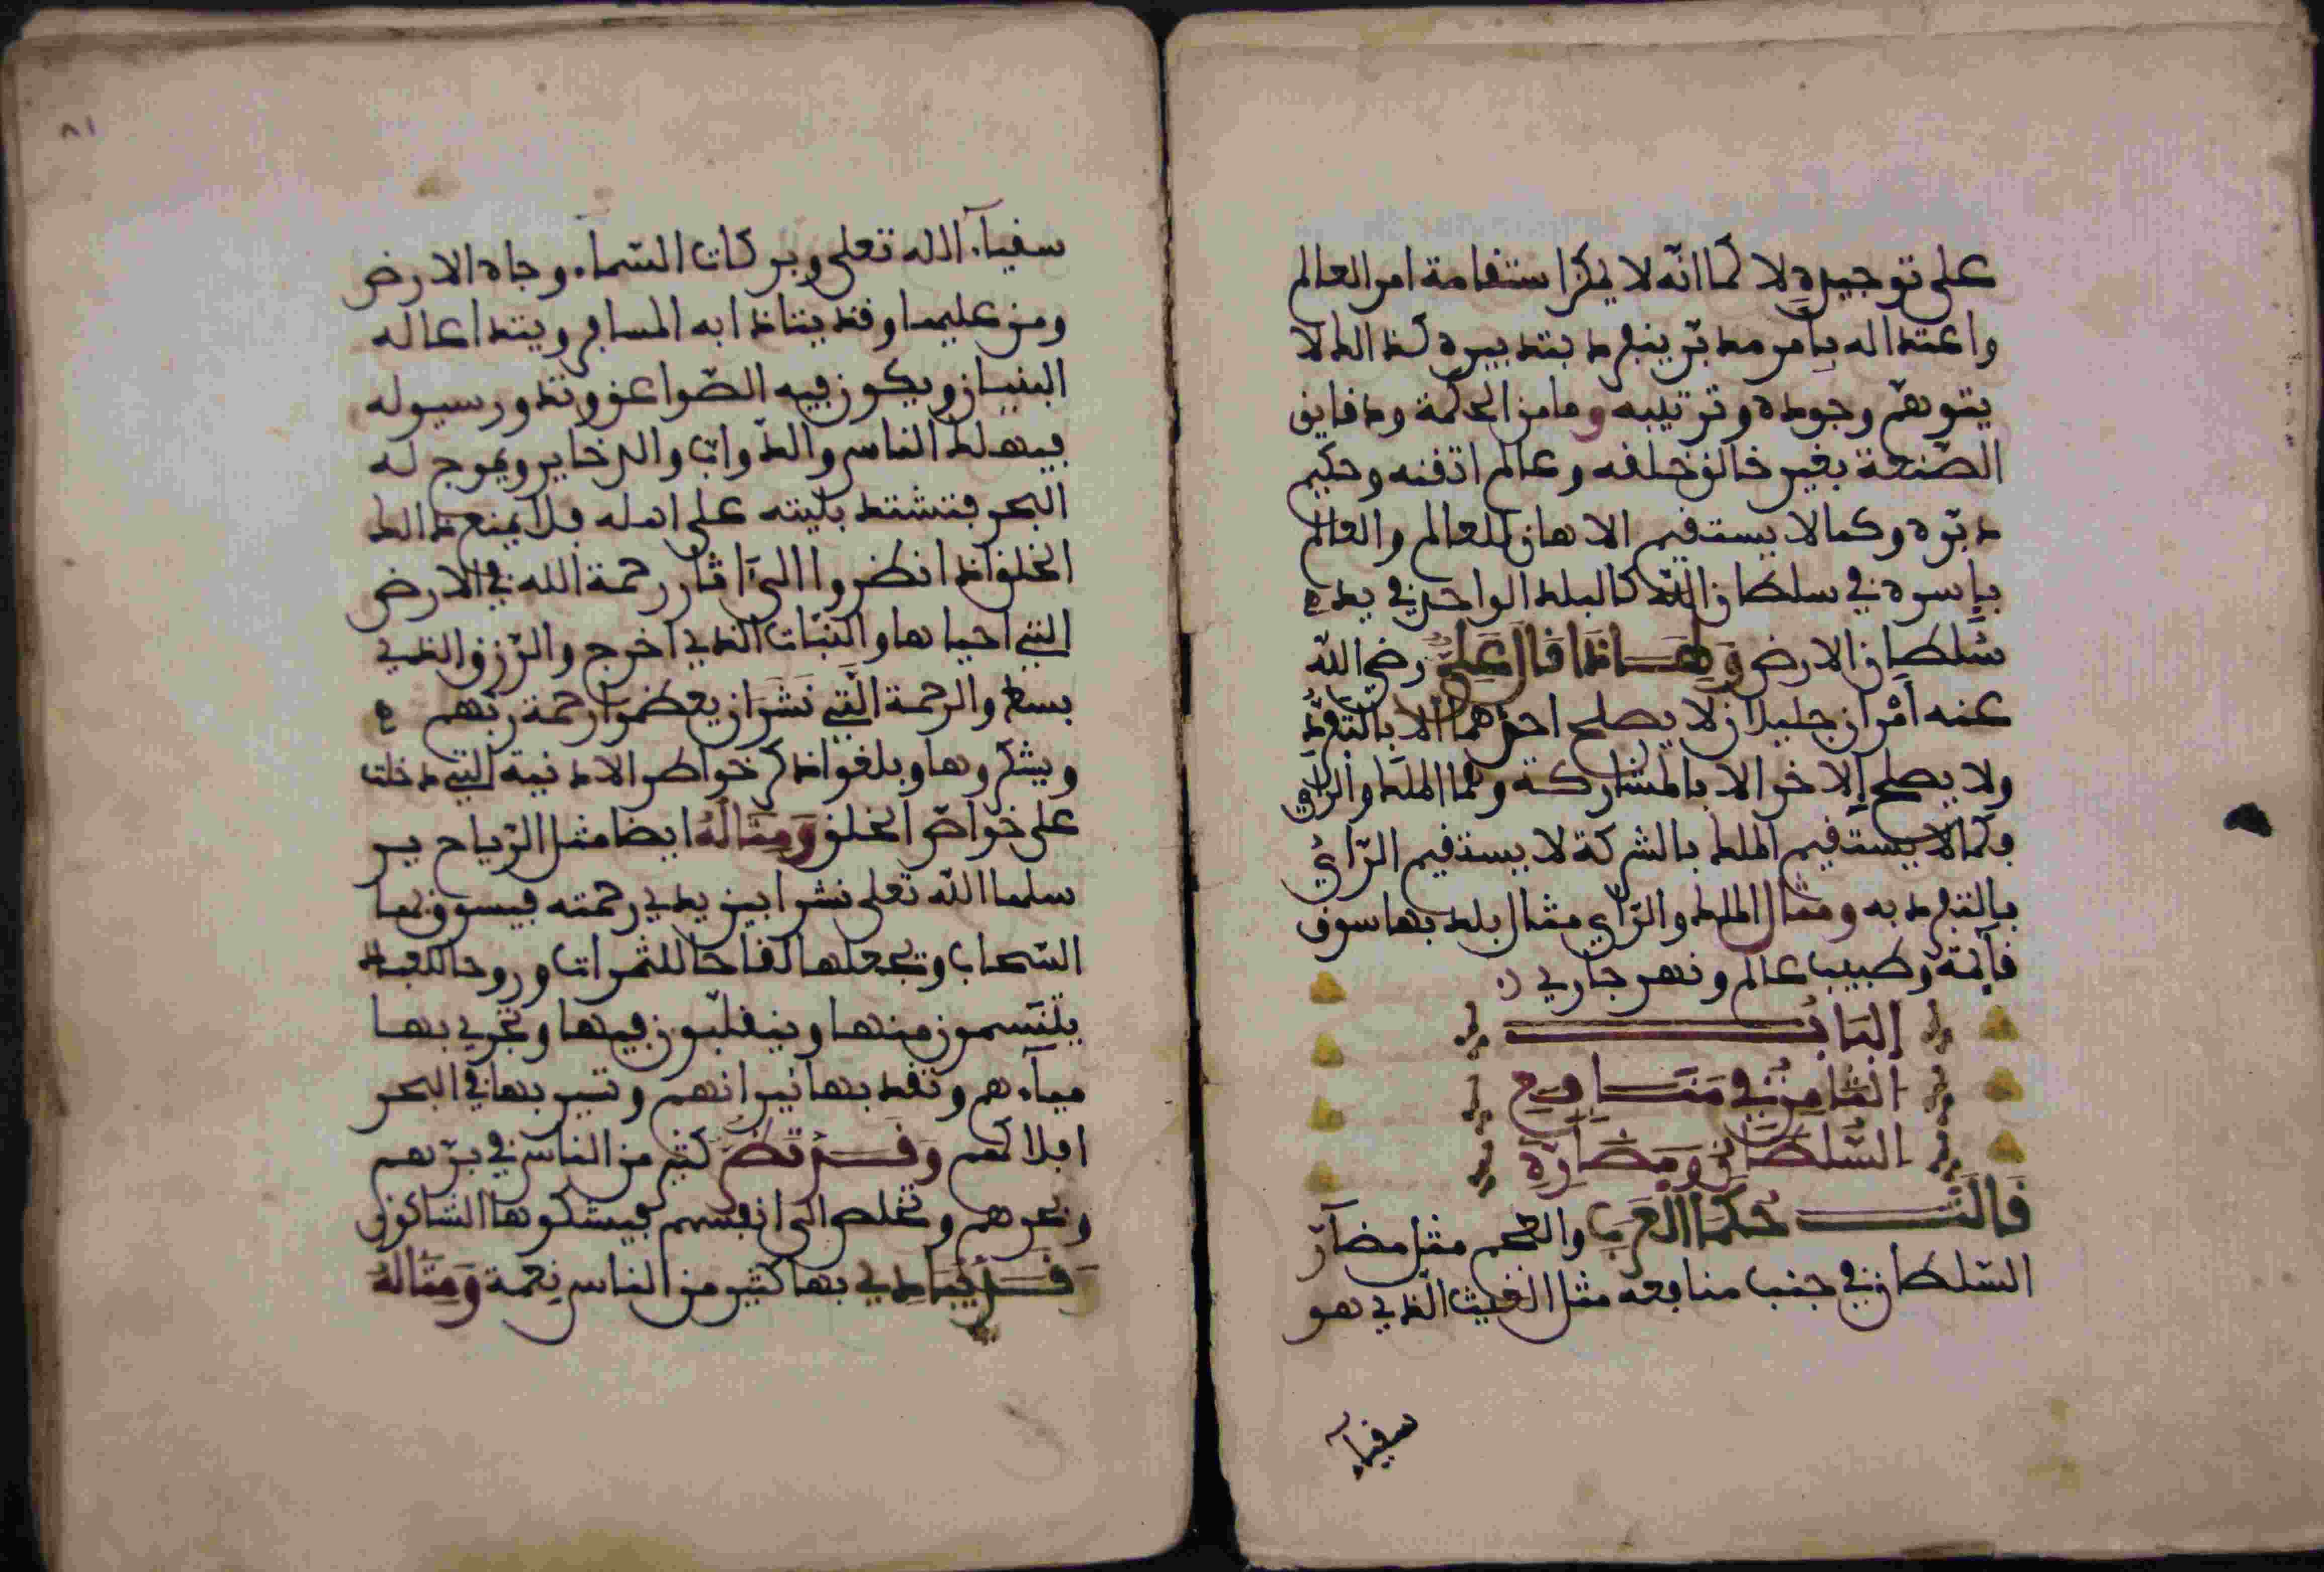 على توحيده لا كما انه لا يمكن استقامة امر العالم
واعتداله بامر مدبر ينفرد بتدبيره كذالك لا
يتوهم وجوده وترتيبه وما من الحكمة ودقايق
الصنعة بغير خالق خلقه وعالم اتقنه وحكيم
دبره وكما لا يستقيم الاهان للعالم والعالم
باسره في سلطان الله كالبلد الواحد في يد
سلطان الارض ولهاذا قال علي رضي الله
عنه امران جليلان لا يصلح احدهما الا بالتفرد
ولا يصلح الاخر الا بالمشاركة وهما الملك والراي
فكما لا يستقيم الملك بالشركة لا يستقيم الراي
بالتفرد به ومثال الملك والراي مثال بلد بها سوق
قايمة وطبيب عالم ونهر جاري
الباب
الثامن في منافع
السلطان ومضاره
قالت حكما العرب والعجم مثل مضار
السلطان في جنب منافعه مثل الغيث الذي هو
سفيا
٨١
سفيآء الله تعلى وبركات السماء وحياه الارض
ومن عليها وقد يتاذا به المسافر ويتداعا له
البنيان ويكون فيه الصواعق وتدور سيوله
فيهلك الناس والدواب والذخاير ويموج له
البحر فتشتد بليته على اهله فلا يمنع ذالك
الخلق اذا نظروا الى آثار رحمة الله في الارض
التي احياها والنبات الذي اخرج والرزق الذي
بسط والرحمة التي نشر ان يعظموا رحمة ربهم
ويشكروها ويلغوا ذكر خواطر الاذية التي دخلت
على خواص الخلق ومثاله ايضا مثل الرياح ير
سلها الله تعلى نشرا بين يدي رحمته فيسوق بها
السحاب ويجعلها لقاحا للثمرات وروحا للعباد
يتنسمون منها ويتقلبون فيها وتجري بها
مياههم وتقد بها نيرانهم وتسير بها في البحر
افلاكهم وقد تضر كثير من الناس في برهم
وبحرهم وتخلص الى انفسهم فيشكوها الشاكون
وقد يتاذي بها كثير من الناس نعمة ومثاله